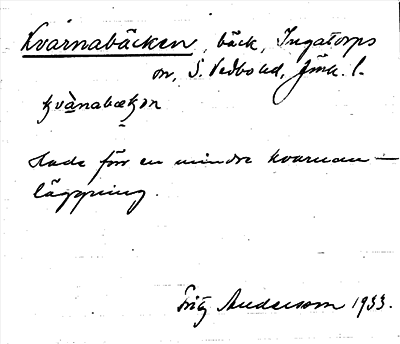 Kvarnabäcken, bäck, Ingatorps
sn, S. Vedbo hd, Jönk. l.
kvànabækən
stade för en mindre kvarnan-
läggning.
Fritz Andersson 1933.